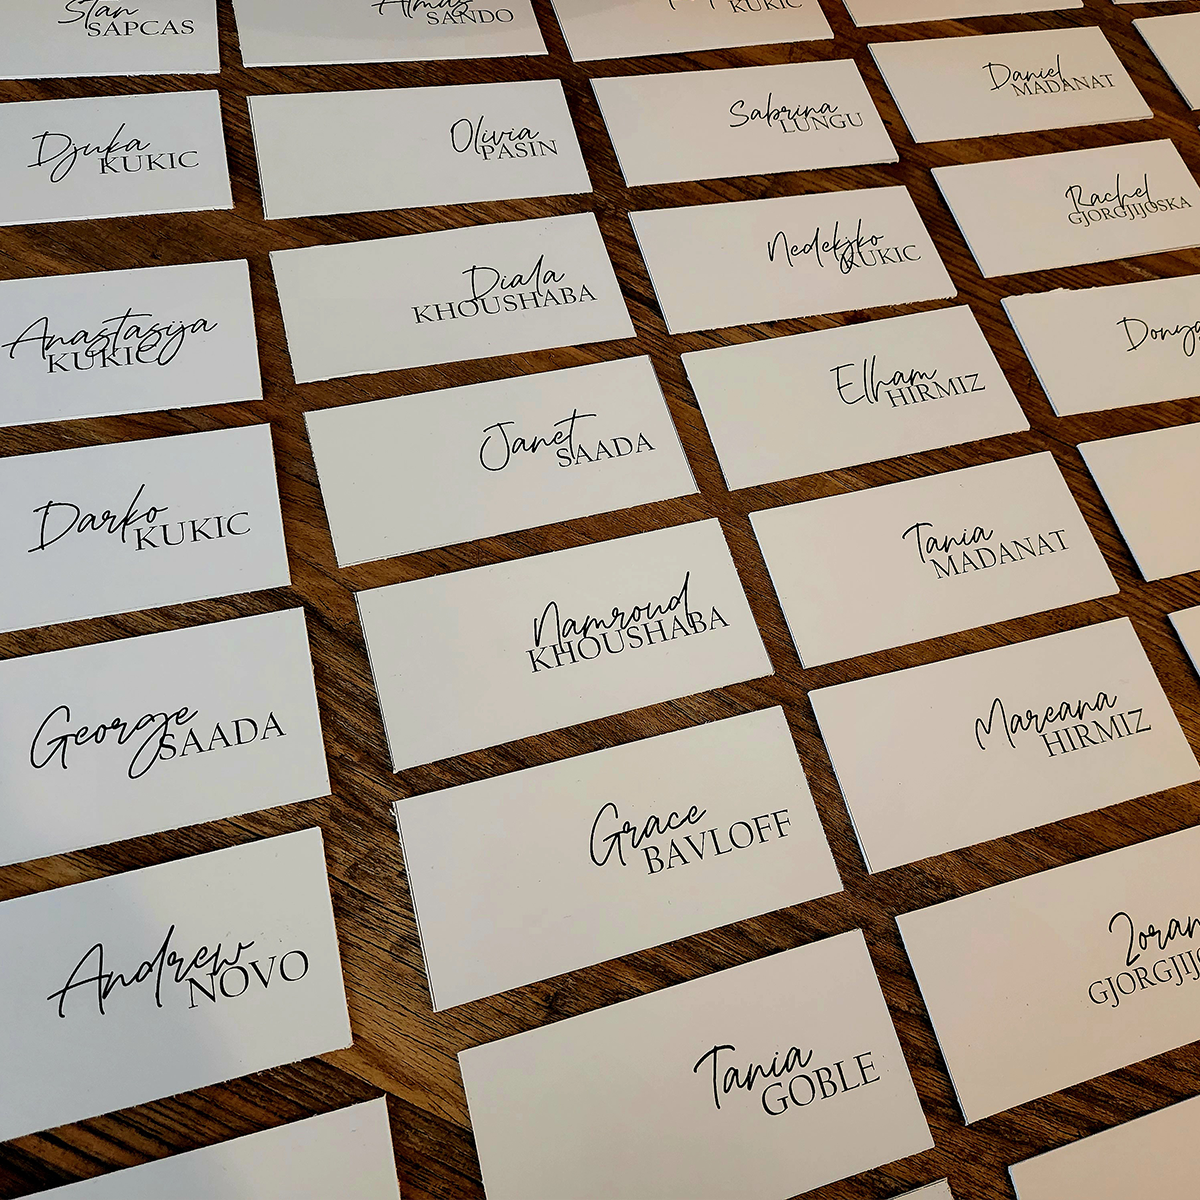 Stan
SAPCAS
Almas
SANDO
KUKIC
Djuka
KUKIC
Olivia
PASIN
Sabrina
LUNGU
Daniel
MADANAT
Anastasija
KUKIC
Diala
KHOUSHABA
Nedeljko
KUKIC
Rachel
GJORGJIJOSKA
Darko
KUKIC
Janet
SAADA
Elham
HIRMIZ
George
SAADA
Namroud
KHOUSHABA
Tania
MADANAT
Andrew
NOVO
Grace
BAVLOFF
Mareana
HIRMIZ
Tania
GOBLE
Zoran